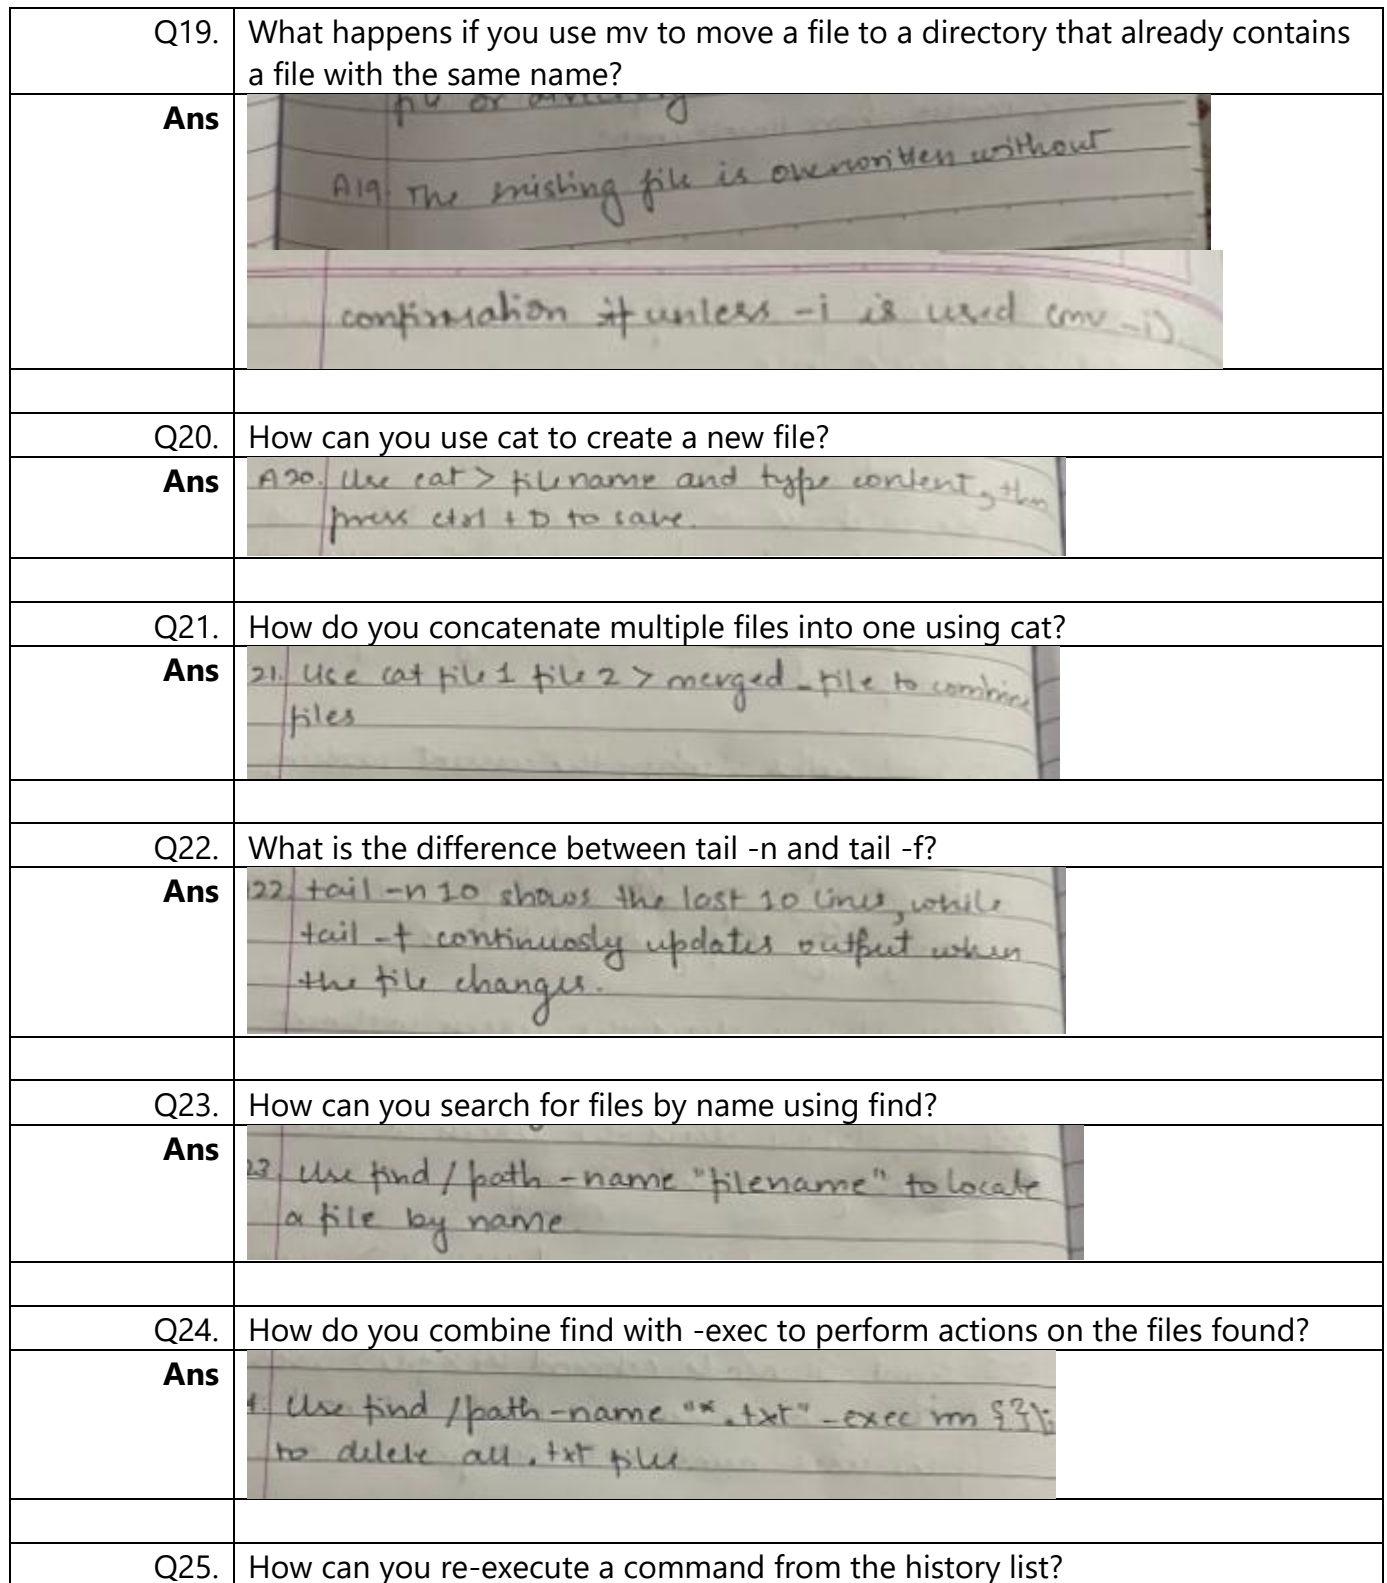 Q19. What happens if you use mv to move a file to a directory that already contains
a file with the same name?
Ans
file or directory
A19. The existing file is overwritten without
confirmation if unless -i is used (mv -i).
Q20. How can you use cat to create a new file?
Ans
A20. Use cat > filename and type content, then
press ctrl + D to save.
Q21. How do you concatenate multiple files into one using cat?
Ans
21. Use cat file1 file2 > merged_file to combine
files
Q22. What is the difference between tail -n and tail -f?
Ans
22. tail -n 10 shows the last 10 lines, while
tail -f continuosly updates output when
the file changes.
Q23. How can you search for files by name using find?
Ans
23. Use find /path -name "filename" to locate
a file by name
Q24. How do you combine find with -exec to perform actions on the files found?
Ans
Use find /path -name "*.txt" -exec rm {} \;
to delete all .txt files
Q25. How can you re-execute a command from the history list?